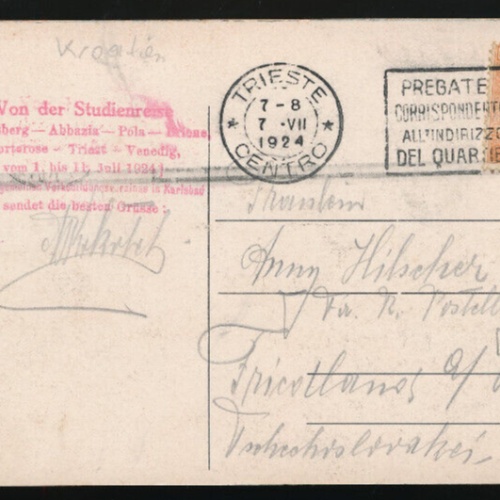 Kroatien
Von der Studienreise
sberg — Abbazia — Pola — Brione,
ortorose — Triest — Venedig,
vom 1. bis 11. Juli 1924)
in Karlsbad
sendet die besten Grüsse:
TRIESTE
7-8
7 · VII
1924
CENTRO
PREGATE
CORRISPONDENT
ALL'INDIRIZZO
DEL QUARTIE
Fräulein
Anny Hilscher
Fa. R.
a/
Tschechoslovakei